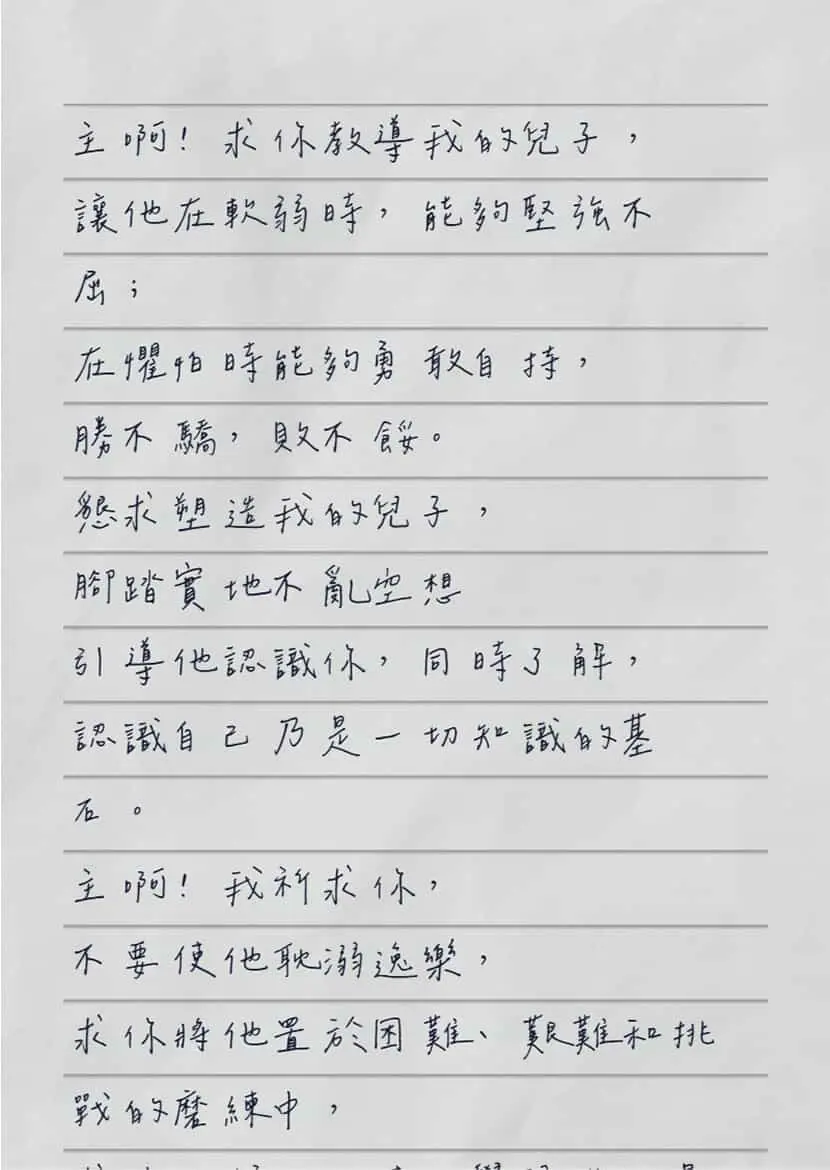 主啊！求你教導我的兒子，
讓他在軟弱時，能夠堅強不
屈；
在懼怕時能夠勇敢自持，
勝不驕，敗不餒。
懇求塑造我的兒子，
腳踏實地不亂空想
引導他認識你，同時了解，
認識自己乃是一切知識的基
石。
主啊！我祈求你，
不要使他耽溺逸樂，
求你將他置於困難、艱難和挑
戰的磨練中，